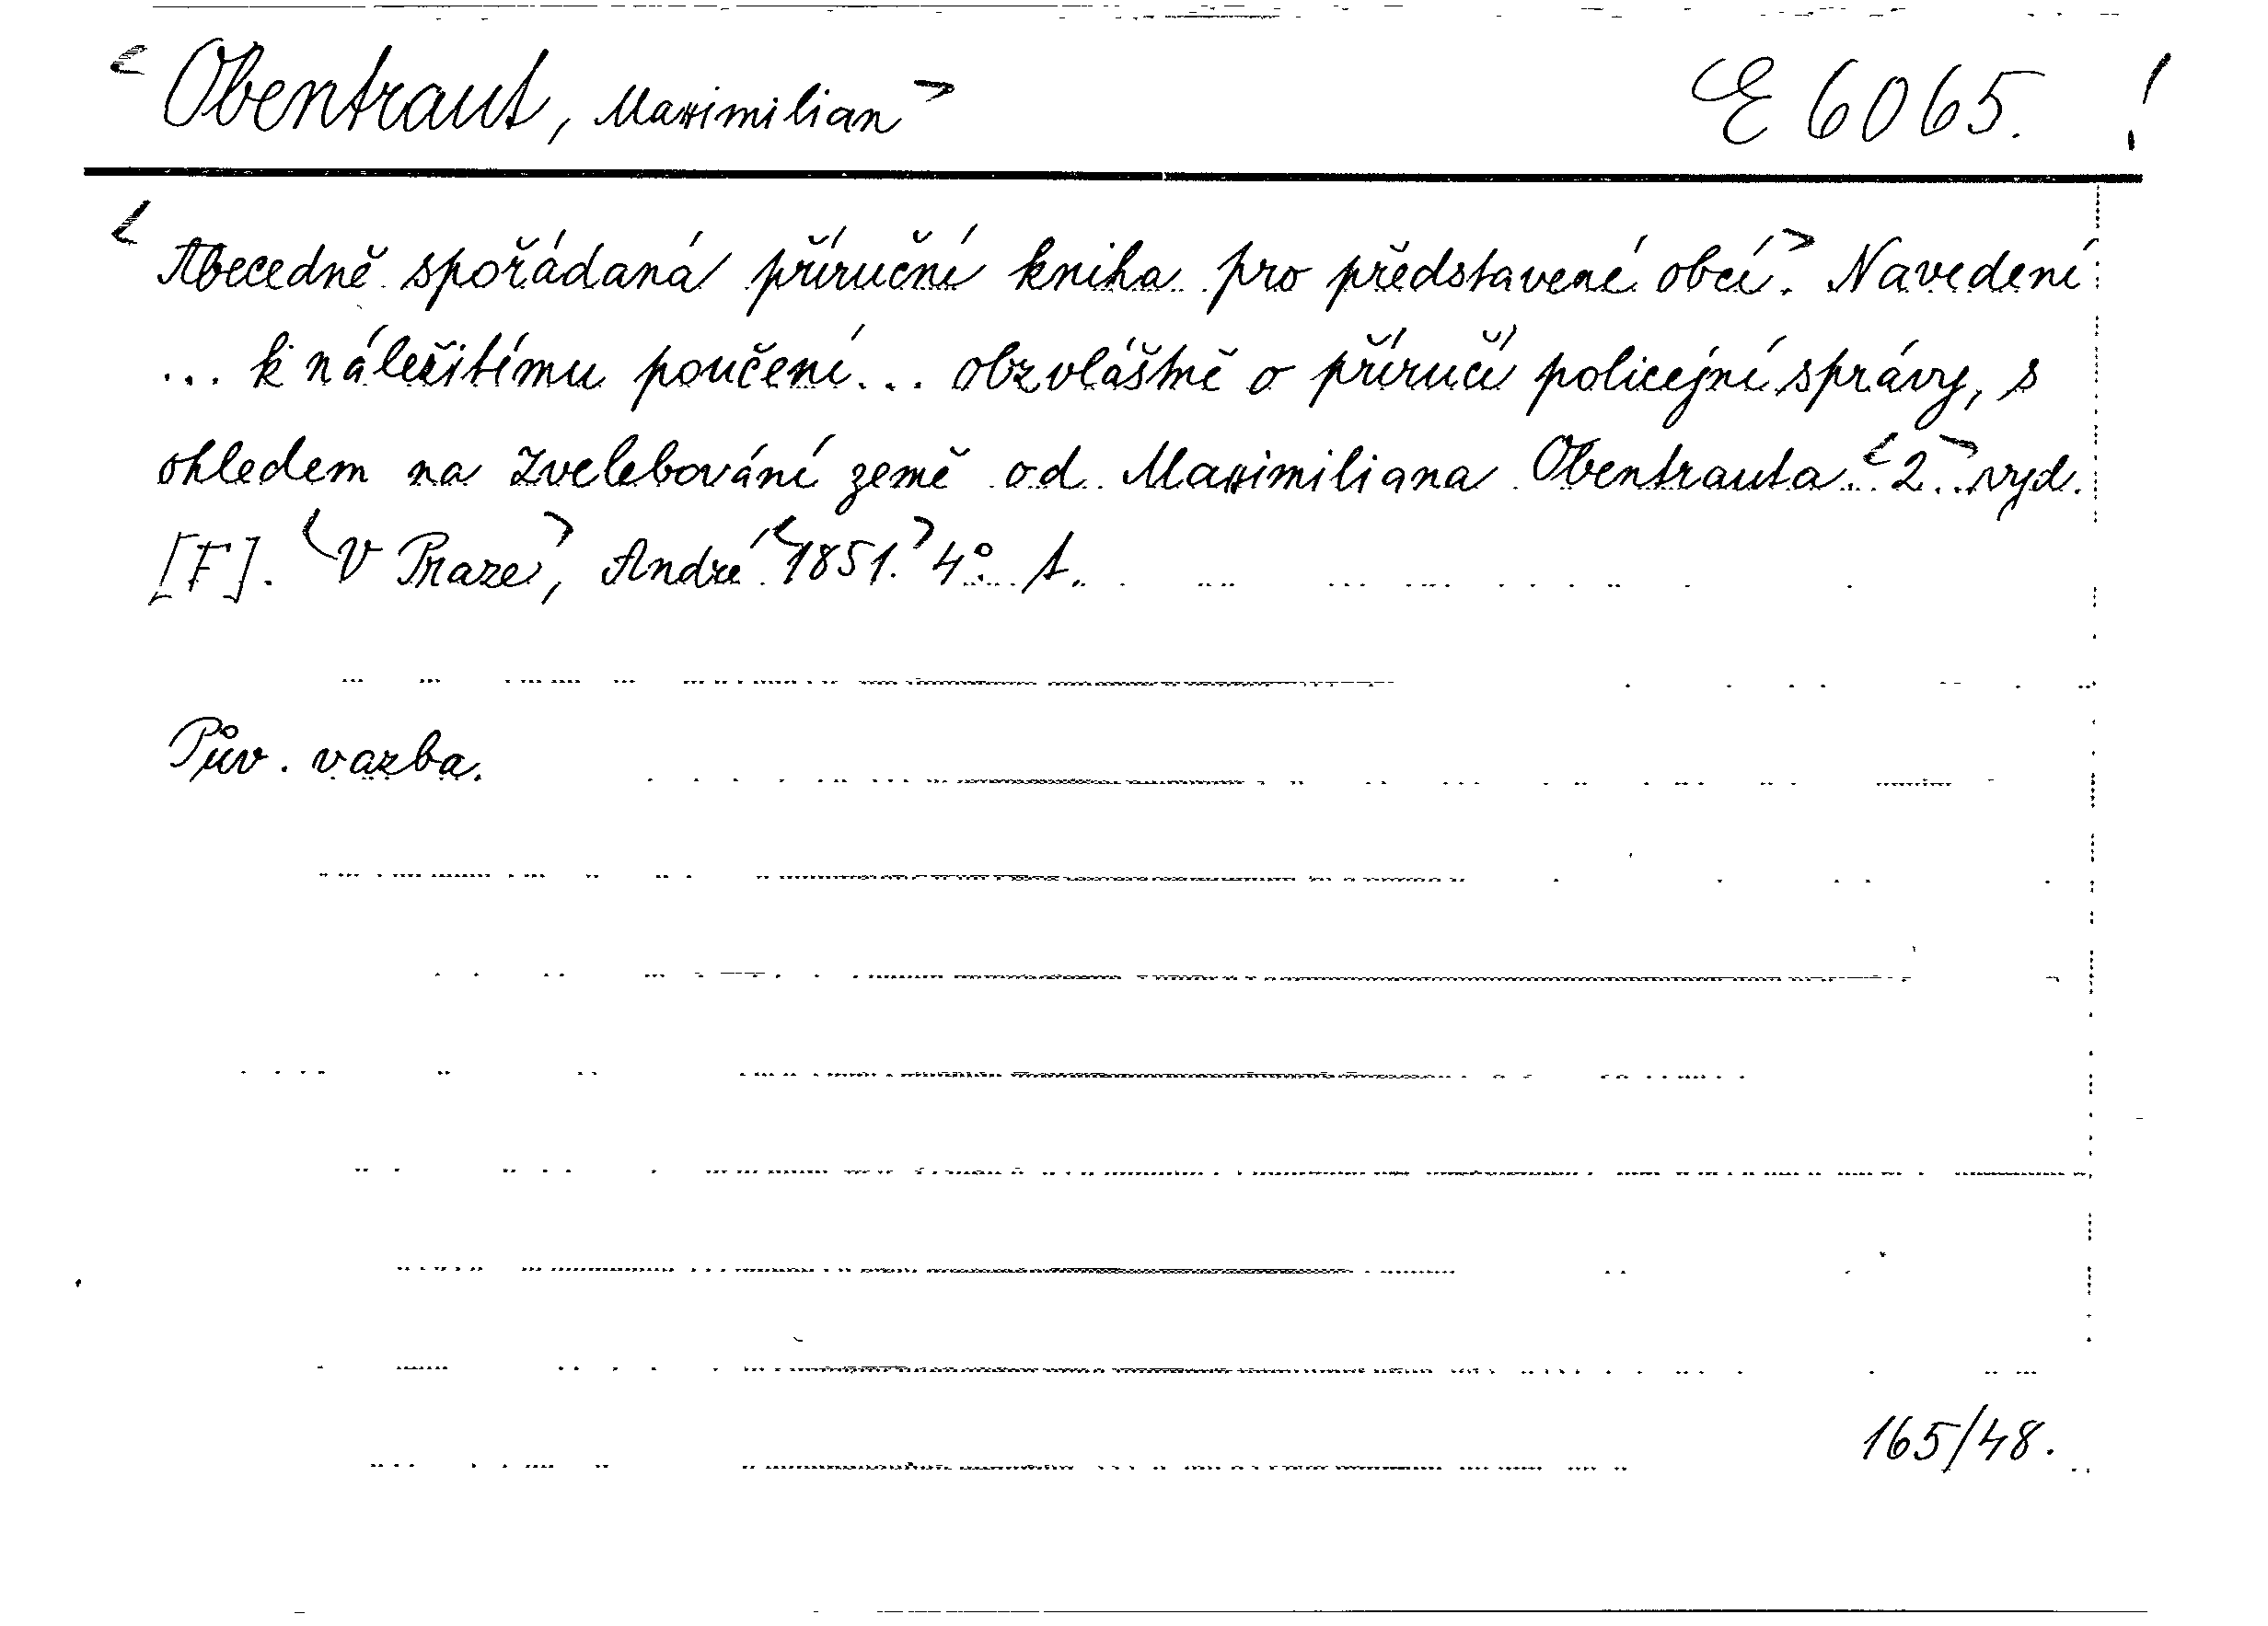 <Obentraut, Maximilian> E 6065. !
<Abecedně spořádaná příruční kniha pro představené obcí>. Navedení
... k náležitímu poučení... obzvláštně o příručí policejní správy, s
ohledem na zvelebování země od Maximiliana Obentrauta. <2.> vyd.
[F]. <V Praze>, André <1851.> 4°.
Pův. vazba.
165/48.